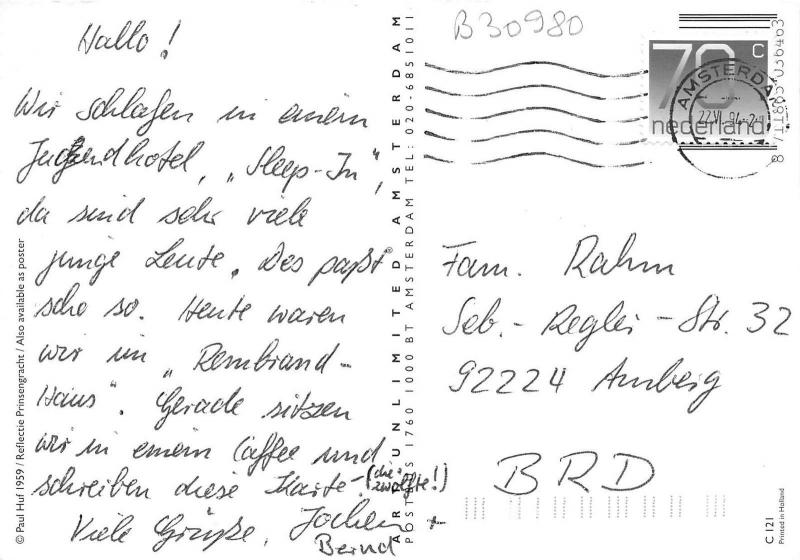 Hallo!
Wir schlafen in einem
Jugendhotel, „Sleep-In",
da sind sehr viele
junge Leute. Des paßt
scho so. Heute waren
wir im „Rembrand-
Haus". Gerade sitzen
wir in einem Caffee und
schreiben diese Karte. (die zwölfte!)
Viele Grüße, Jochen +
Bernd
© Paul Huf 1959 / Reflectie Prinsengracht / Also available as poster
ART UNLIMITED AMSTERDAM
POSTBUS 1760 1000 BT AMSTERDAM TEL: 020-6851011
B30980
70 c
nederland
AMSTERDAM
22.VI.94
Fam. Rahm
Seb.-Regler-Str. 32
92224 Amberg
BRD
C 121
Printed in Holland